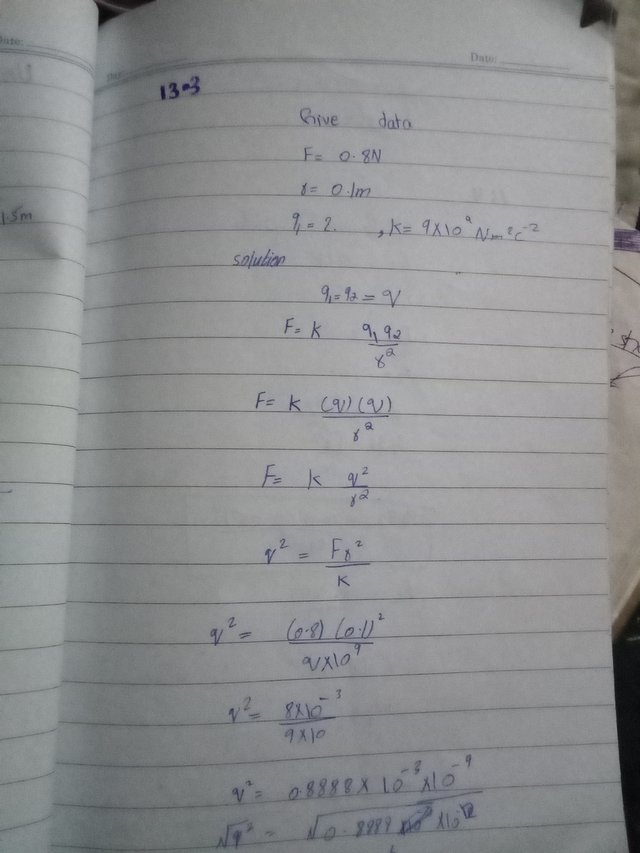 Date:
Date:
13.3
Give data
F= 0.8N
r= 0.1m
1.5m
q₁= ?. , k= 9×10⁹ Nm²c⁻²
solution
q₁=q₂=q
F= k q₁q₂/r²
F= k (q)(q)/r²
F= k q²/r²
q² = Fr²/k
q² = (0.8) (0.1)²/9×10⁹
q² = 8×10⁻³/9×10
q² = 0.8888× 10⁻³×10⁻⁹
√q² = √0.8889 ×10